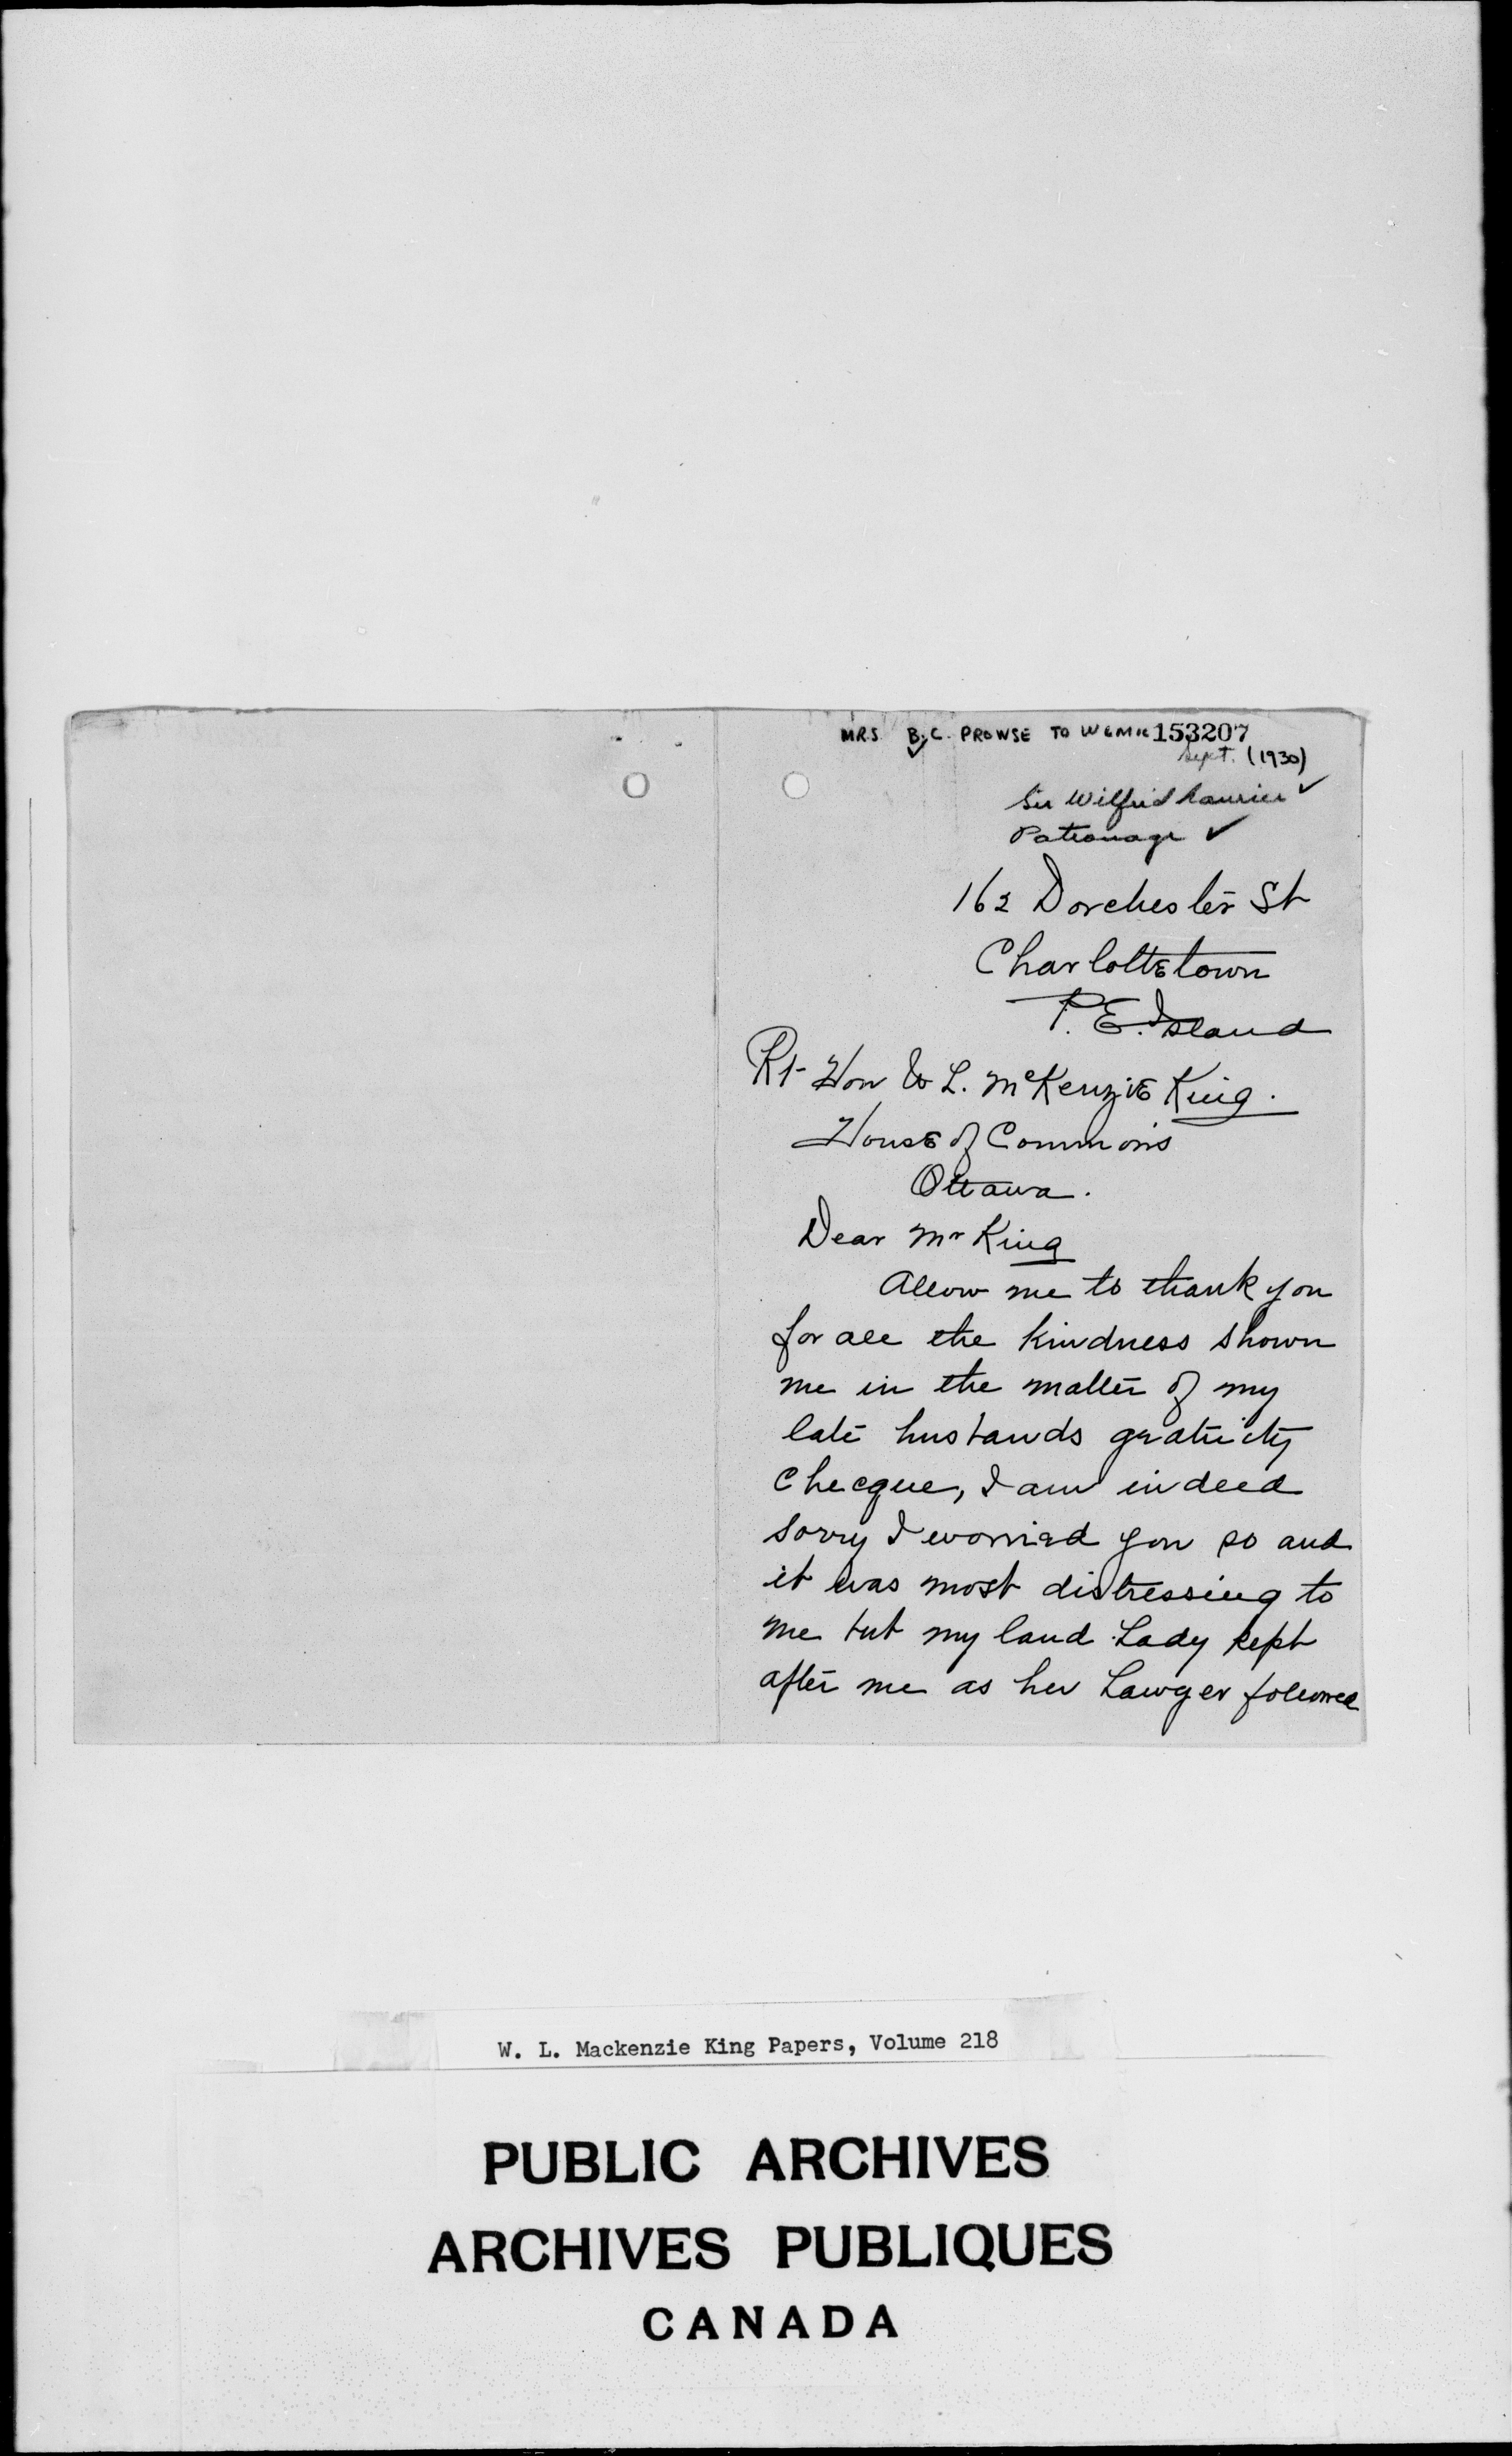 MRS B.C. PROWSE TO WLMK 153207
Sept. (1930)
Sir Wilfrid Laurier ✓
Patronage ✓
162 Dorchester St
Charlottetown
P. E. Island
Rt Hon W L. McKenzie King.
House of Commons
Ottawa.
Dear Mr King
Allow me to thank you
for all the kindness shown
me in the matter of my
late husbands gratuity
checque, I am indeed
sorry I worried you so and
it was most distressing to
me but my land Lady kept
after me as her Lawyer followed
W. L. Mackenzie King Papers, Volume 218
PUBLIC ARCHIVES
ARCHIVES PUBLIQUES
CANADA